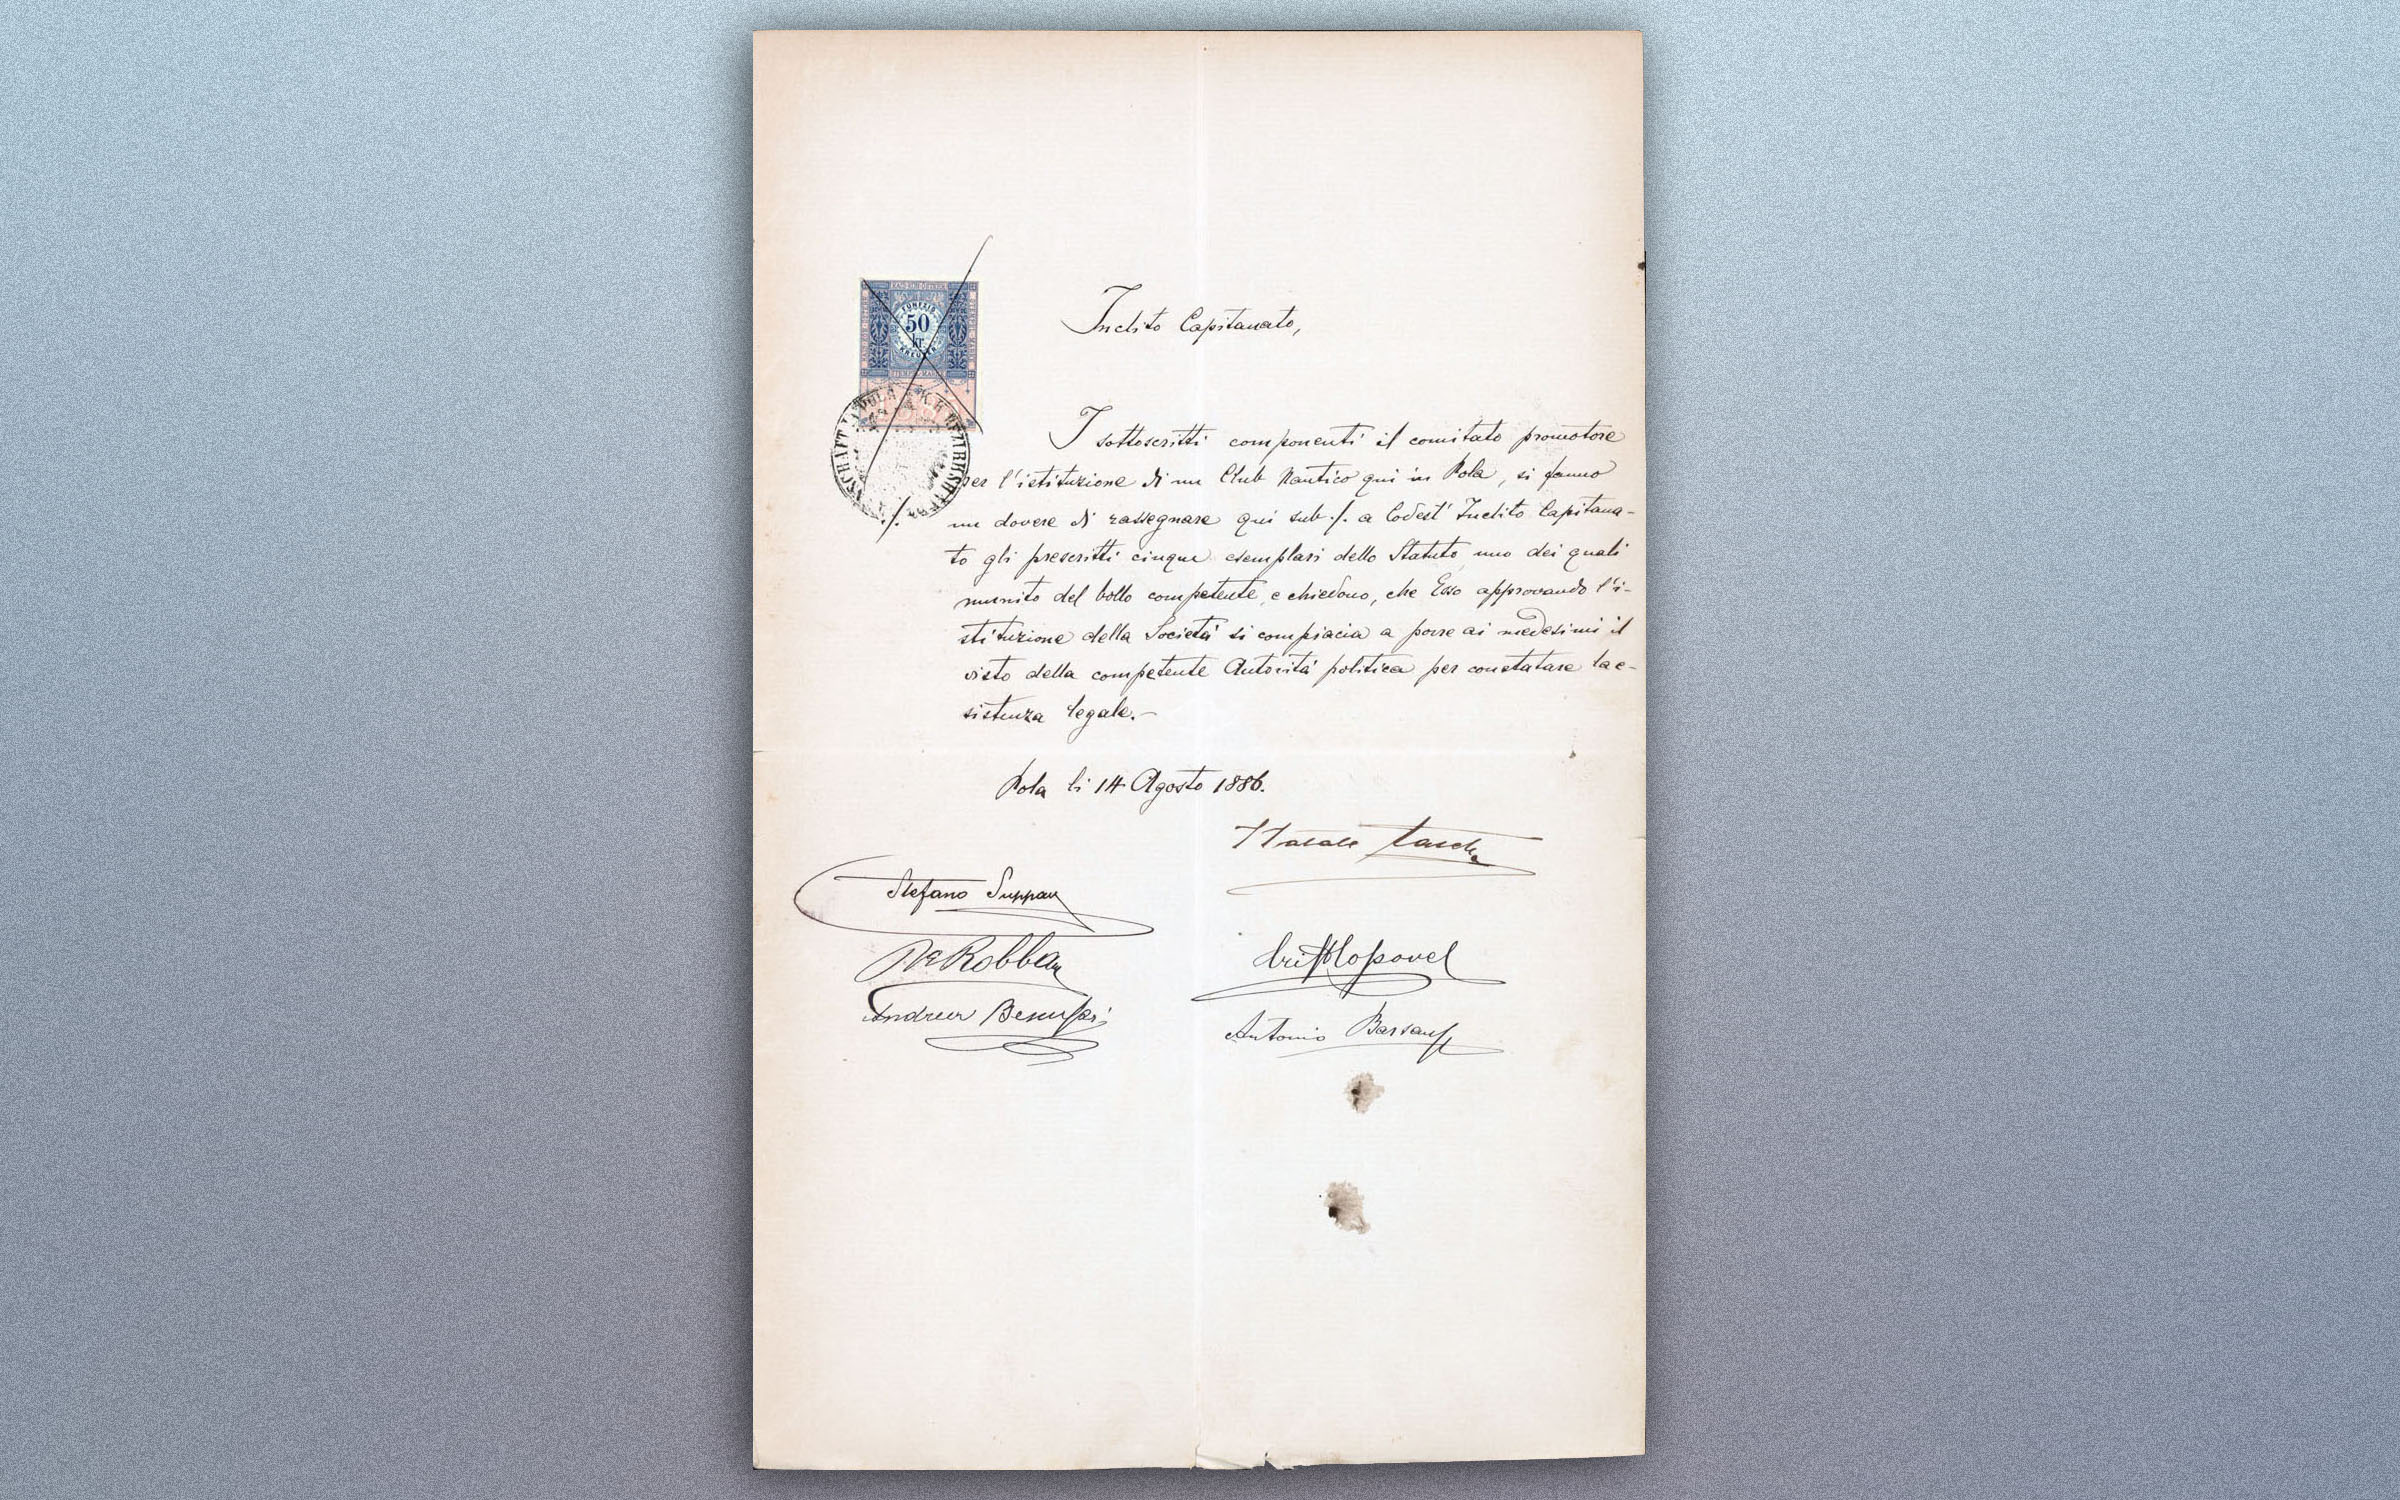 FÜNFZIG
50
kr.
KREUZER
STEMPEL MARKE
K. K. BEZIRKSH
NSCHAFT IN POLA
Inclito Capitanato,
I sottoscritti componenti il comitato promotore
per l'istituzione di un Club Nautico qui in Pola, si fanno
./. un dovere di rassegnare qui sub ./. a Codest' Inclito Capitana-
to gli prescritti cinque esemplari dello Statuto, uno dei quali
munito del bollo competente, e chiedono, che Esso approvando l'i-
stituzione della Società si compiacia a porre ai medesimi il
visto della competente Autorità politica per constatare la e-
sistenza legale.-
Pola li 14 Agosto 1886.
Natale
Stefano Suppan
Robba
Andrea Benussi
Antonio